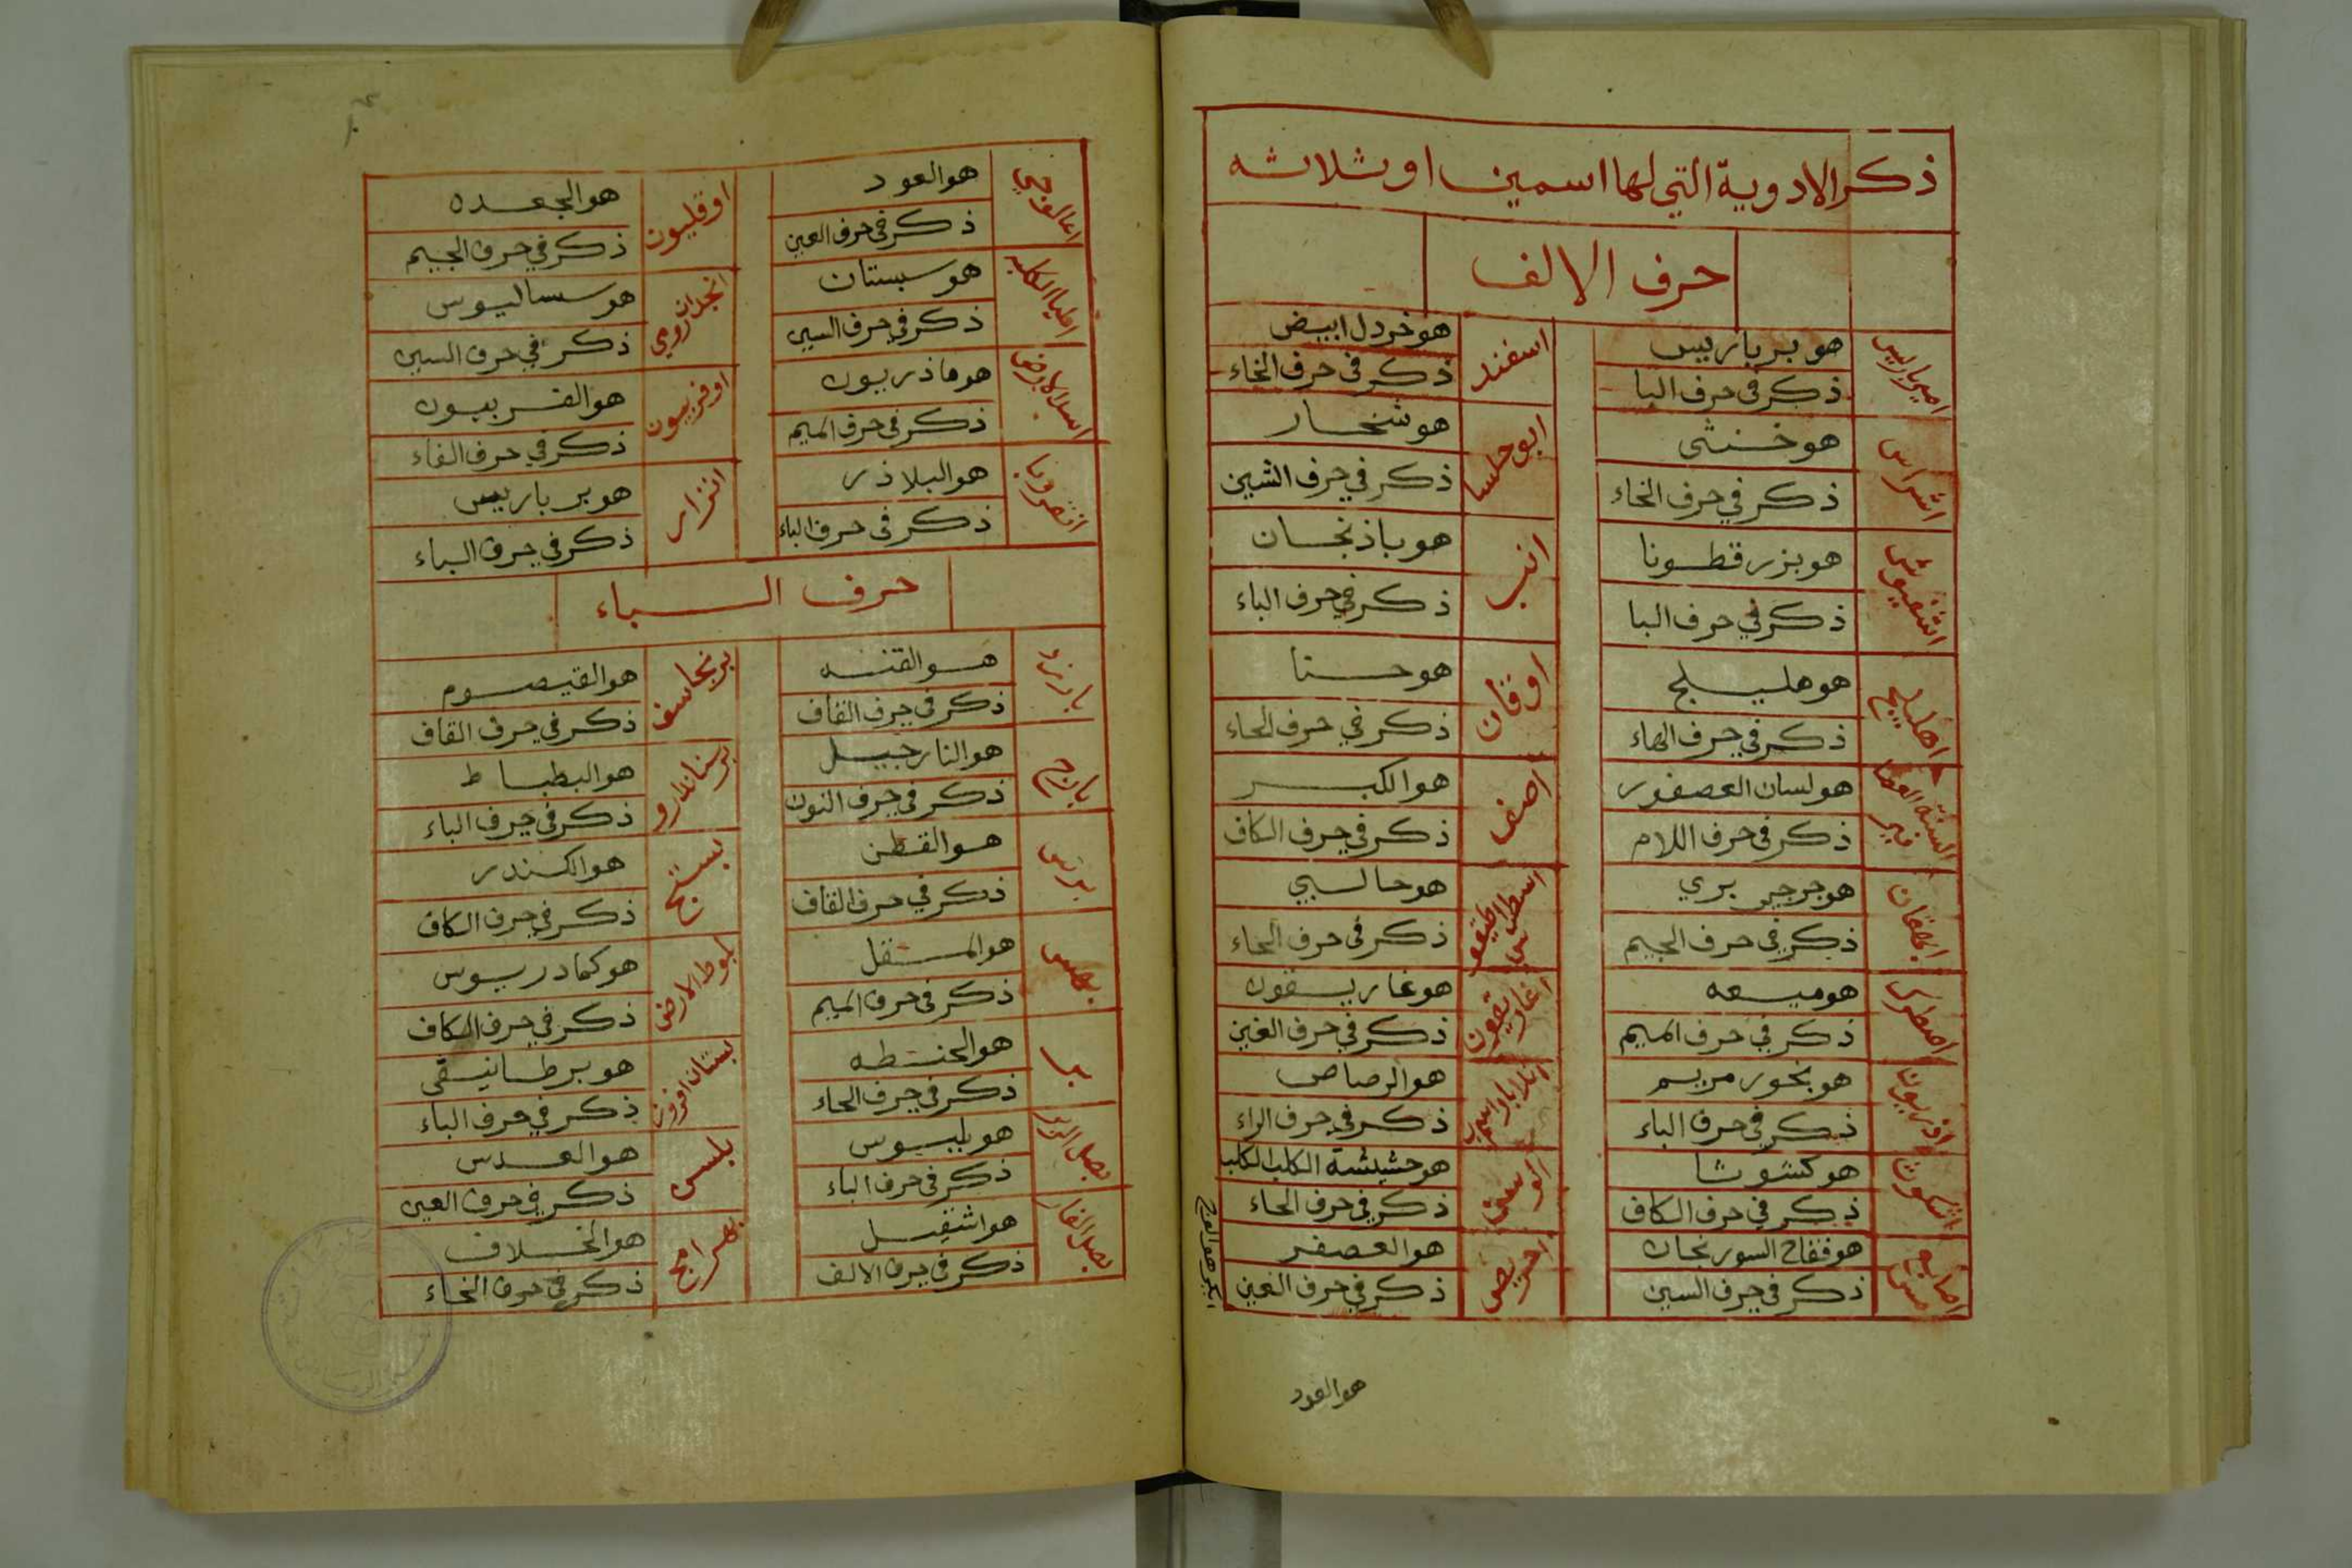 ذكر الادوية التي لها اسمين او ثلاثه
حرف الالف
اميرباريس
هو برباريس
ذكر في حرف البا
اشراس
هو خنثى
ذكر في حرف الخاء
اسفيوش
هو بزر قطونا
ذكر في حرف البا
اهليلج
هو هليلج
ذكر في حرف الهاء
السنة العصا
فير
هو لسان العصفور
ذكر في حرف اللام
ايهقان
هو جرجير بري
ذكر في حرف الجيم
اصطرك
هو ميعه
ذكر في حرف الميم
اذريون
هو بخور مريم
ذكر في حرف الباء
اشكوث
هو كشوثا
ذكر في حرف الكاف
اصابع
هرمس
هو فقاح السورنجان
ذكر في حرف السين
اسفند
هو خردل ابيض
ذكر في حرف الخاء
ابو حلسا
هو شنجار
ذكر في حرف الشين
انب
هو باذنجان
ذكر في حرف الباء
اوقان
هو حنا
ذكر في حرف الحاء
اصف
هو الكبر
ذكر في حرف الكاف
اسطراطيقو
س
هو حالبي
ذكر في حرف الحاء
اغاريقون
هو غاريقون
ذكر في حرف الغين
هو الرصاص
ذكر في حرف الراء
هو حشيشة الكلب الكلب
ذكر في حرف الحاء
احريض
هو العصفر
ذكر في حرف العين
هو العود
اغالوجي
هو العود
ذكر في حرف العين
هو سبستان
ذكر في حرف السين
اسد الارض
هو ماذريون
ذكر في حرف الميم
انقرويا
هو البلاذر
ذكر في حرف الباء
اوقليون
هو الجعده
ذكر في حرف الجيم
انجدان رومي
هو سساليوس
ذكر في حرف السين
اوفربيون
هو الفربيون
ذكر في حرف الفاء
اترار
هو برباريس
ذكر في حرف الباء
حرف الباء
بارزد
هو القنه
ذكر في حرف القاف
بارنج
هو النارجيل
ذكر في حرف النون
برس
هو القطن
ذكر في حرف القاف
هو المستقل
ذكر في حرف الميم
بر
هو الحنطه
ذكر في حرف الحاء
بصل الزير
هو بلبوس
ذكر في حرف الباء
بصل الفار
هو اشقيل
ذكر في حرف الالف
برنجاسف
هو القيصوم
ذكر في حرف القاف
برسنادارو
هو البطباط
ذكر في حرف الباء
بستج
هو الكندر
ذكر في حرف الكاف
بلوط الارض
هو كمادريوس
ذكر في حرف الكاف
بستان افروز
هو برطانيقى
ذكر في حرف الباء
بلس
هو العدس
ذكر في حرف العين
بهرامج
هو الخلاف
ذكر في حرف الخاء